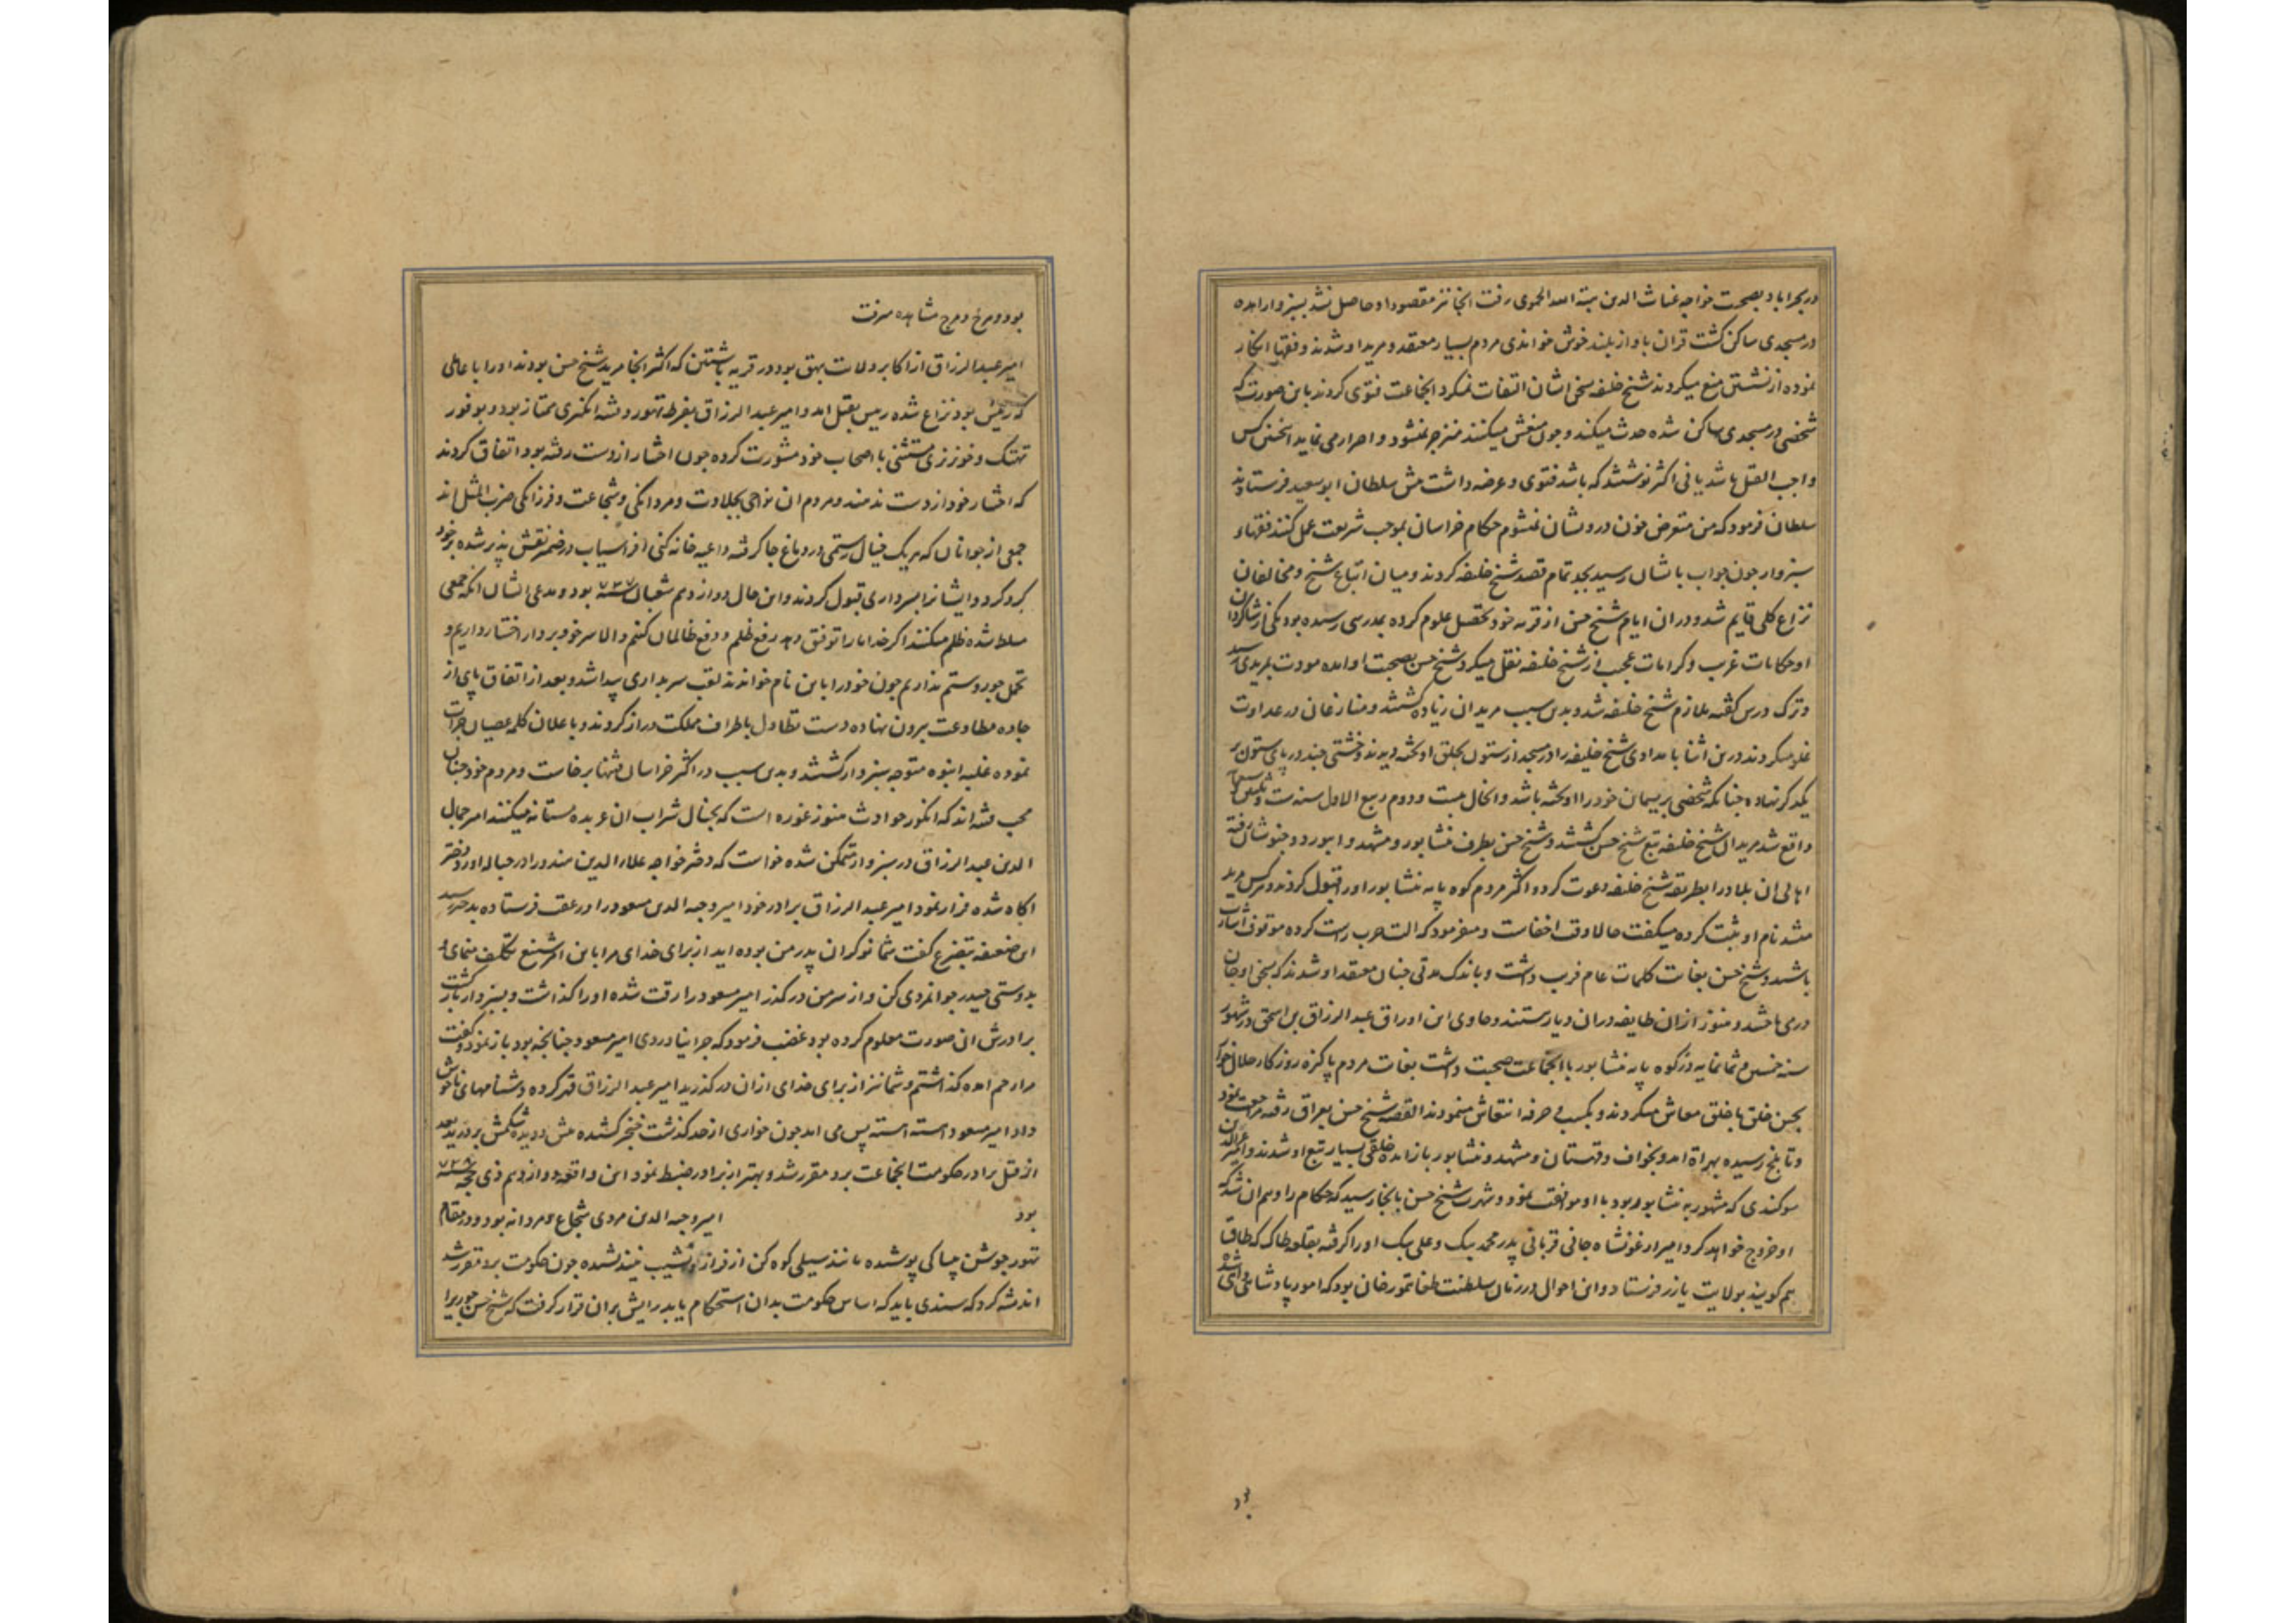 در بحراباد بصحبت خواجه غیاث الدین هبة الله الحموی رفت انجا نیز مقصود او حاصل نشد بسبزوار امده
در مسجدی ساکن کشت قران باواز بلند خوش خواندی مردم بسیار معتقد و مرید او شدند و فقها انکار
نموده از نشستن منع میکردند شیخ خلیفه بسخن ایشان التفات نمیکرد انجماعت فتوی کردند باین صورت که
شخصی در مسجدی ساکن شده حدث میکند و چون منعش میکنند منزجر نمیشود و اصرار می نماید اینچنین کس
واجب القتل باشد یا نی اکثر نوشتند که باشد فتوی و عرضه داشت پیش سلطان ابو سعید فرستادند
سلطان فرمود که من متعرض خون درویشان نمیشوم حکام خراسان بموجب شریعت عمل کنند فقهاء
سبزوار چون جواب باشان رسید بجد تمام قصد شیخ خلیفه کردند و میان اتباع شیخ و مخالفان
نزاع کلی قایم شد و در ان ایام شیخ حسن از قریه خود تحصیل علوم کرده بمدرسی رسیده بود یکی از شاکردان
او حکایات غریب و کرامات عجیب از شیخ خلیفه نقل میکرد شیخ حسن بصحبت او امده مودت بمریدی رسید
و ترک درس کفته ملازم شیخ خلیفه شد و بدین سبب مریدان زیاده کشتند و منازعان در عداوت
غلو میکردند درین اثنا بامدادی شیخ خلیفه را در مسجد از ستون بحلق اویخته دیدند و خشتی چند در پای ستون بر
یکدیکر نهاده چنانکه شخصی بریسمان خود را اویخته باشد و انحال بیست و دوم ربیع الاول سنه ست و ثلثین و سبعمایه
واقع شد مریدان شیخ خلیفه تبع شیخ حسن کشتند و شیخ حسن بطرف نیشابور و مشهد و ابیورد و خبوشان رفته
اهالی ان بلاد را بطریقه شیخ خلیفه دعوت کرد و اکثر مردم کوه پایه نیشابور او را قبول کردند و هر کس مرید
میشد نام او ثبت کرده میکفت حالا وقت اخفاست و میفرمود که الت حرب راست کرده موقوف اشارت
باشید و شیخ حسن بغایت کلمات عام فریب داشت و باندک مدتی چنان معتقد او شدند که بسخن او جان
در می باختند و هنوز ازان طایفه دران دیار هستند و حاوی این اوراق عبد الرزاق بن اسحق در شهور
سنه خمسین و ثمانمایه در کوه پایه نیشابور با انجماعت صحبت داشت بغایت مردم پاکیزه روزکار حلال خوار
بحسن خلق با خلق معاش میکردند و بکسب و حرفه انتعاش مینمودند القصه شیخ حسن بعراق رفته مراجعت نمود
و تا بلخ رسیده بهراة امد و بخواف و قهستان و مشهد و نیشابور باز امده خلقی بسیار تبع او شدند و امیر عز الدین
سوکندی که مشهور به نیشابور بود با او موافقت نمود و شهرت شیخ حسن بانجا رسید که حکام را وهم ان شد که
او خروج خواهد کرد امیر ارغونشاه جانی قربانی پدر محمد بیک و علی بیک او را کرفته بقلعه طاک که طاق
هم کویند بولایت یازر فرستاد و این احوال در زمان سلطنت طغاتیمور خان بود که امور پادشاهی واهی شده
بود
بود و هرج و مرج مشاهده میرفت
امیر عبد الرزاق از اکابر ولایت بیهق بود در قریه باشتین که اکثر انجا مرید شیخ حسن بودند او را با عاملی
که رئیس بود نزاع شده رییس بقتل امد و امیر عبد الرزاق بفرط تهور و فتنه انکیزی ممتاز بود و بوفور
تهتک و خونریزی مستثنی با اصحاب خود مشورت کرده چون اختیار از دست رفته بود اتفاق کردند
که اختیار خود از دست ندهند و مردم ان نواحی بجلادت و مردانکی و شجاعت و فرزانکی ضرب المثل اند
جمعی از جوانان که هر یک خیال رستمی در دماغ جا کرفته داعیه خانه کنی افراسیاب در ضمیر نقش پذیر شده بر خود
کرد کرد و ایشانرا بسرداری قبول کردند و این حال دوازدهم شعبان سنه ۷۳۷ بود و مدعی ایشان انکه جمعی
مسلط شده ظلم میکنند اکر خدا مارا توفیق دهد رفع ظلم و دفع ظالمان کنیم و الا سر خود بر دار اختیار داریم و
تحمل جور و ستم نداریم چون خود را باین نام خواندند لقب سربداری پیدا شد و بعد از اتفاق پای از
جاده مطاوعت بیرون نهاده دست تطاول باطراف مملکت دراز کردند و باعلان کلمه عصیان جرات
نموده غلبه انبوه متوجه سبزوار کشتند و بدین سبب در اکثر خراسان فتنها برخاست و مردم خود چنان
محب فتنه اند که انکور حوادث هنوز غوره است که بخیال شراب ان عربده مستانه میکنند امیر جمال
الدین عبد الرزاق در سبزوار متمکن شده خواست که دختر خواجه علاء الدین هندو را در حباله اورد دختر
اکاه شده فرار نمود امیر عبد الرزاق برادر خود امیر وجیه الدین مسعود را در عقب فرستاده بدختر رسید
این ضعیفه بتضرع کفت شما نوکران پدر من بوده اید از برای خدای مرا باین امر شنیع تکلیف منمای و
بدوستی حیدر جوانمردی کن و از سر من درکذر امیر مسعود را رقت شده او را کذاشت و بسبزوار باز کشت
برادرش ان صورت معلوم کرده بود غضب فرمود که چرا نیاوردی امیر مسعود چنانچه بود باز نمود و کفت
مرا رحم امده کذاشتم و شما نیز از برای خدای ازان درکذرید امیر عبد الرزاق قهر کرده دشنامهای ناخوش
داد امیر مسعود اهسته اهسته پس می امد چون خواری از حد کذشت خنجر کشیده پیش دویده شکمش بر درید بعد
از قتل برادر حکومت انجماعت برو مقرر شد و بهتر از برادر ضبط نمود این واقعه دوازدهم ذی حجه سنه ۷۳۸
بود امیر وجیه الدین مردی شجاع و مردانه بود و در مقام
تهور جوشن چباکی پوشیده مانند سیلی کوه کن از فراز و نشیب نیندیشیده چون حکومت برو مقرر شد
اندیشه کرد که سندی باید که اساس حکومت بدان استحکام یابد رایش بران قرار کرفت که شیخ حسن جوری را